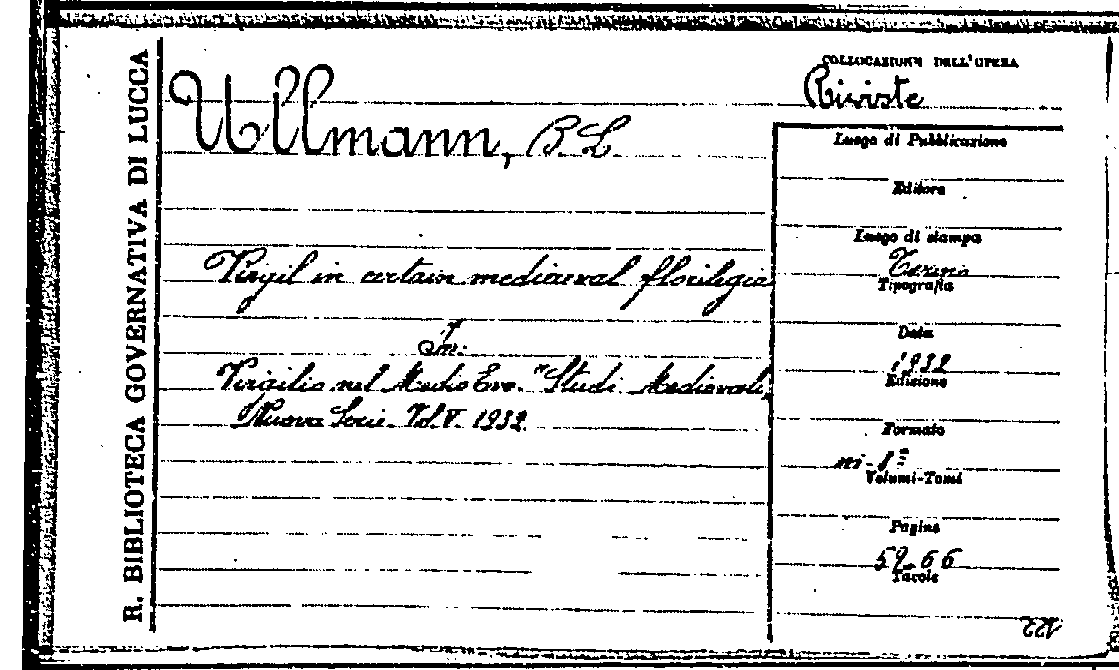 R. BIBLIOTECA GOVERNATIVA DI LUCCA
Ullmann, B. L.
Virgil in certain mediaeval florilegia
In:
Virgilio nel Medio Evo. "Studi Medievali,
Nuova Serie. Vol. V. 1932.
COLLOCAZIONE DELL'OPERA
Riviste
Luogo di Pubblicazione
Editore
Luogo di stampa
Torino
Tipografia
Data
1932
Edizione
Formato
in-8º
Volumi-Tomi
Pagine
59-66
Tavole